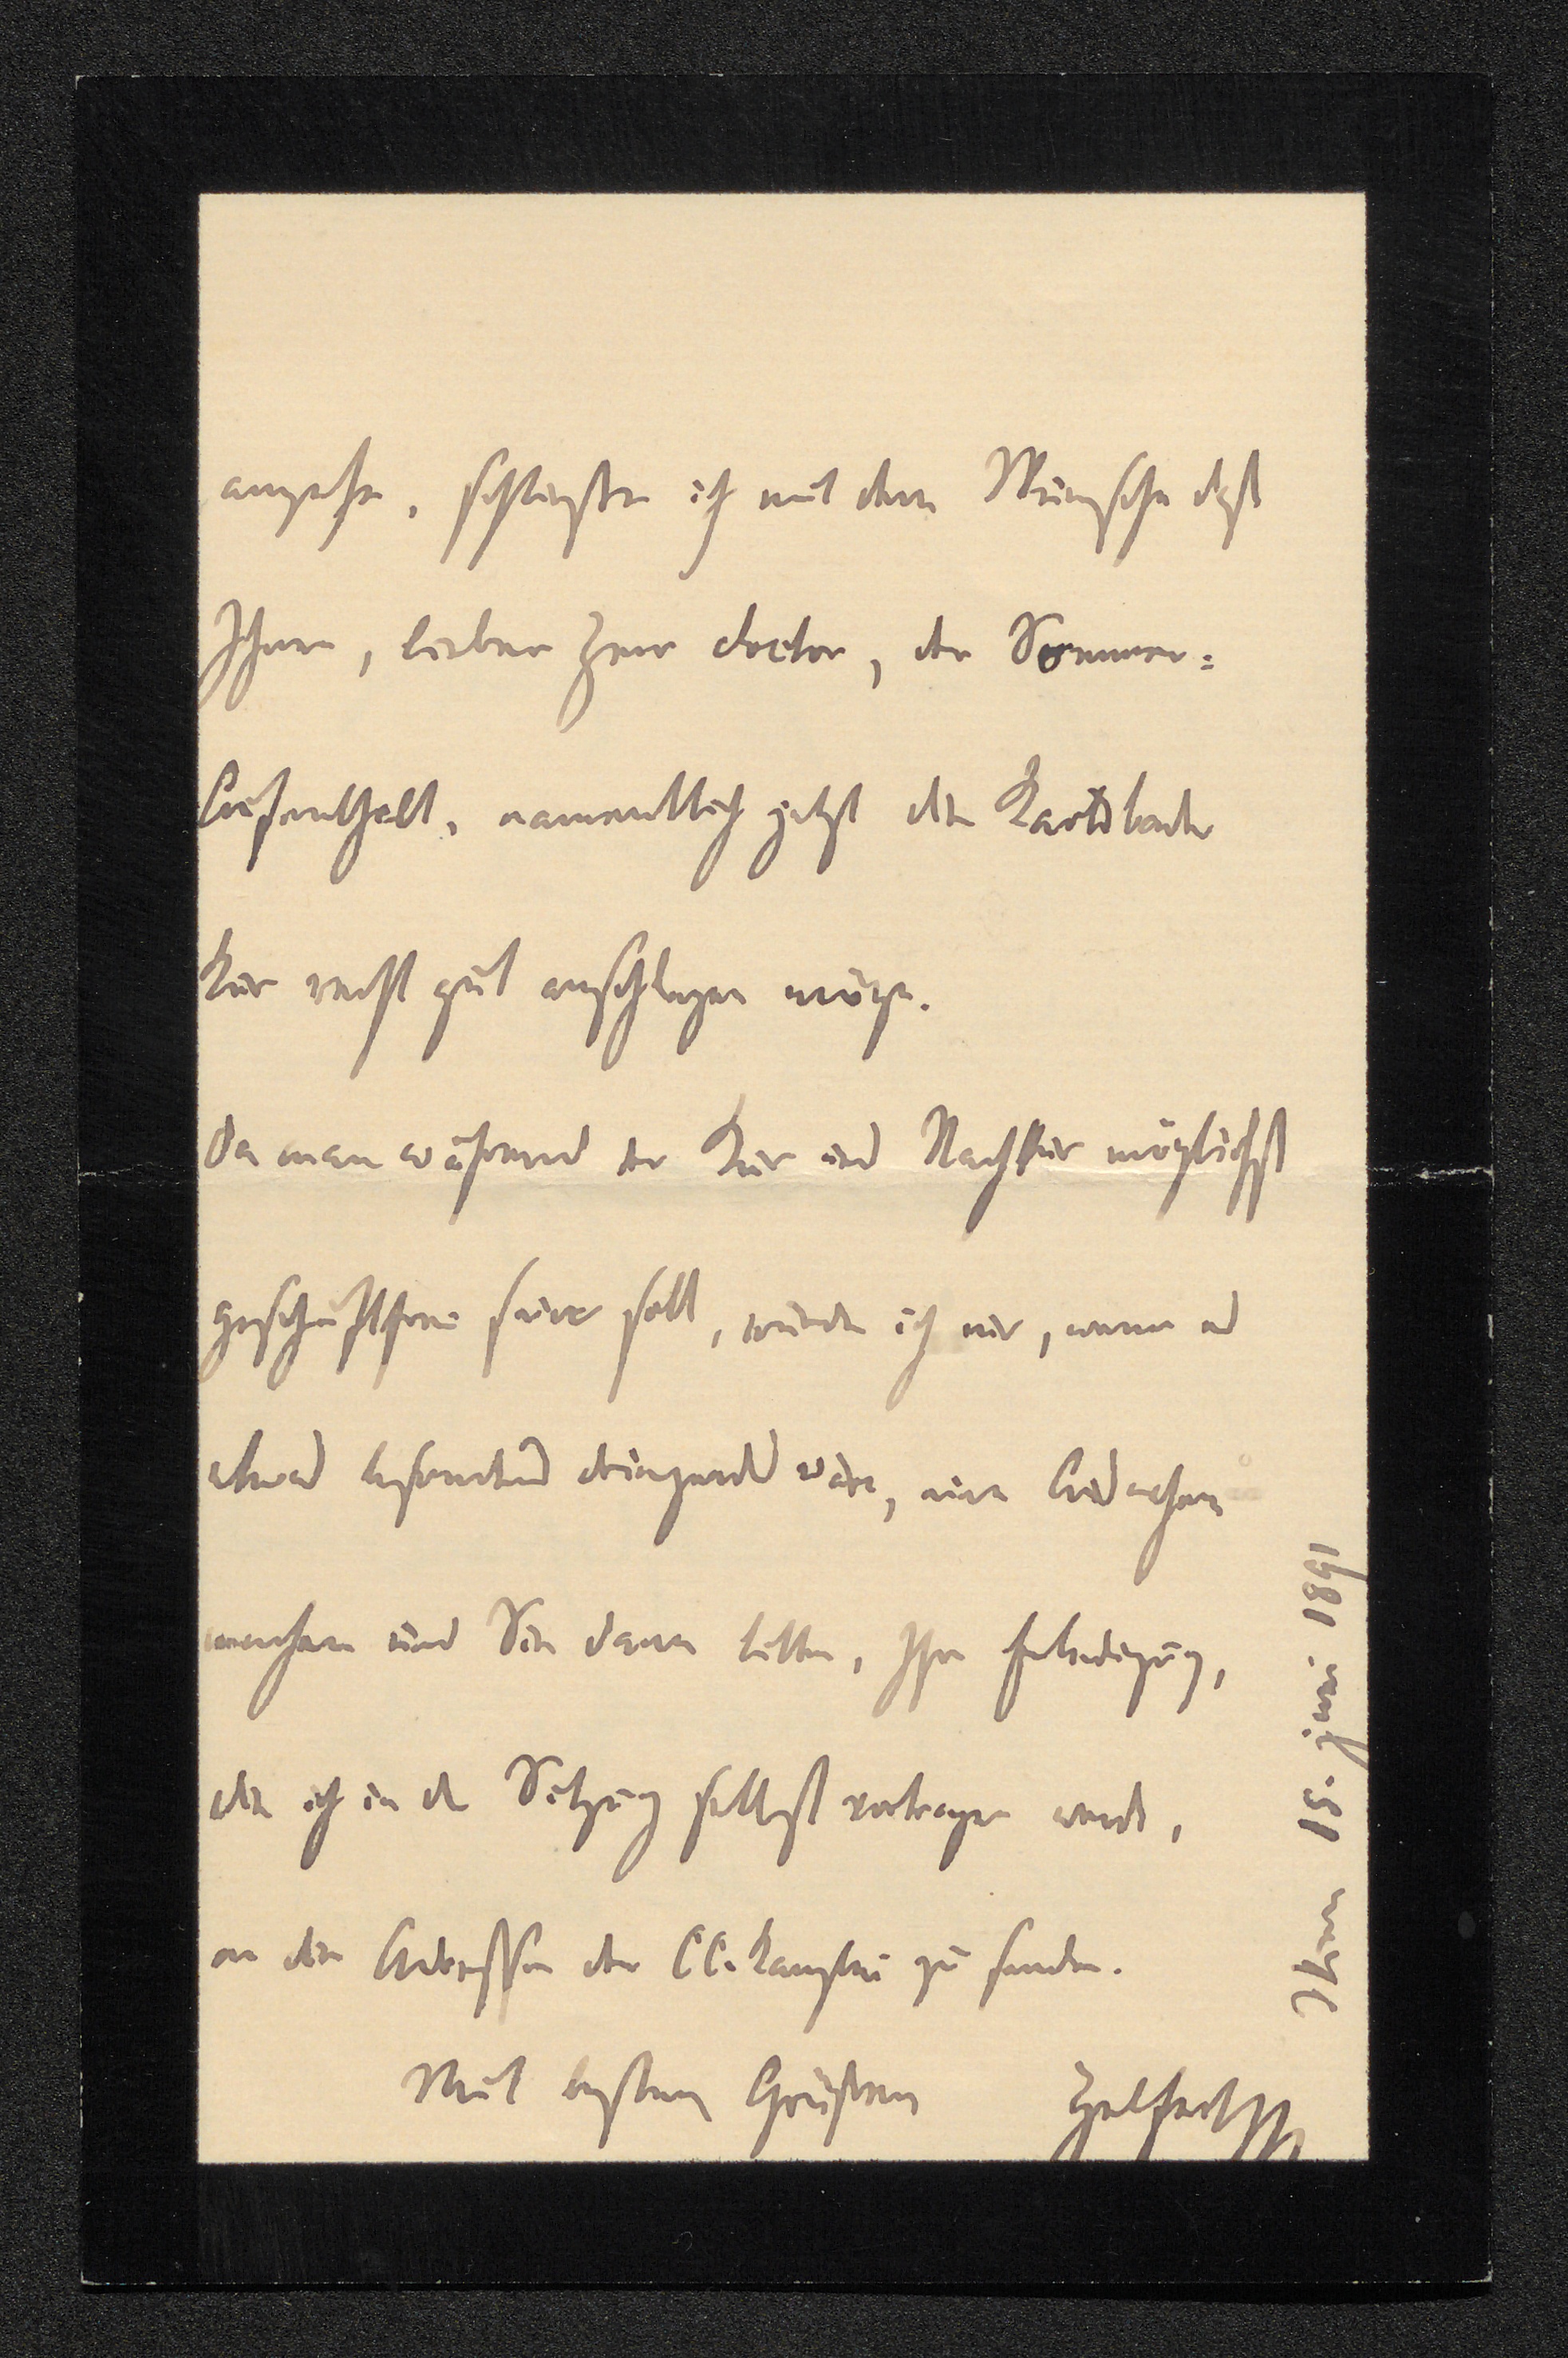 angehe, schließe ich mit dem Wunsche daß
Ihnen, lieber Herr Doctor, der Sommer=
Aufenthalt, namentlich jetzt die Karlsbader
Kur recht gut anschlagen möge.
Da man während der Kur und Nachkur möglichst
geschäftsfrei sein soll, würde ich nur, wenn es
etwas besonders dringendes wäre, eine Ausnahme
machen und Sie dann bitten, Ihre Erledigung,
die ich in der Sitzung selbst vortragen werde,
an die Adresse der CC. Kanzlei zu senden.
Mit besten Grüßen Helfert
15. Juni 1891